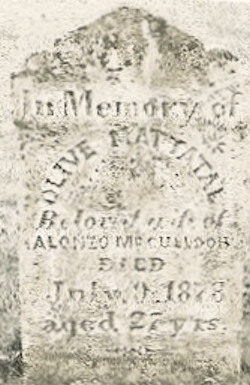 In Memory of
OLIVE MATTATAL
Beloved wife of
ALONZO McCULLOCH
DIED
July 9, 1878
aged 27 yrs.